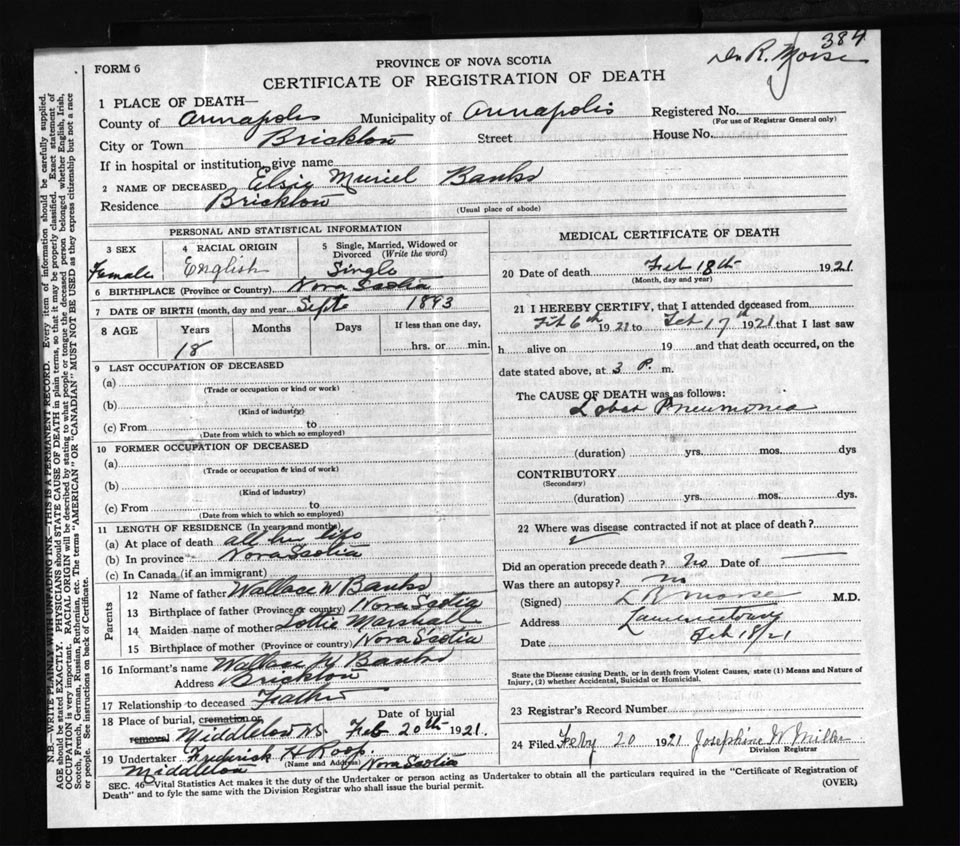 384
Dr R. Morse
FORM 6
PROVINCE OF NOVA SCOTIA
CERTIFICATE OF REGISTRATION OF DEATH
1 PLACE OF DEATH—
County of Annapolis Municipality of Annapolis Registered No.
(For use of Registrar General only)
City or Town Brickton Street House No.
If in hospital or institution, give name
2 NAME OF DECEASED Elsie Muriel Banks
Residence Brickton
(Usual place of abode)
PERSONAL AND STATISTICAL INFORMATION
3 SEX 4 RACIAL ORIGIN 5 Single, Married, Widowed or Divorced (Write the word)
Female English Single
6 BIRTHPLACE (Province or Country) Nova Scotia
7 DATE OF BIRTH (month, day and year) Sept 1893
8 AGE Years Months Days If less than one day,
18 hrs. or min.
9 LAST OCCUPATION OF DECEASED
(a)
(Trade or occupation or kind or work)
(b)
(Kind of industry)
(c) From to
(Date from which to which so employed)
10 FORMER OCCUPATION OF DECEASED
(a)
(Trade or occupation or kind of work)
(b)
(Kind of industry)
(c) From to
(Date from which to which so employed)
11 LENGTH OF RESIDENCE (In years and months)
(a) At place of death all her life
(b) In province Nova Scotia
(c) In Canada (if an immigrant)
Parents
12 Name of father Wallace W Banks
13 Birthplace of father (Province or country) Nova Scotia
14 Maiden name of mother Lottie Marshall
15 Birthplace of mother (Province or country) Nova Scotia
16 Informant's name Wallace W Banks
Address Brickton
17 Relationship to deceased Father
18 Place of burial, cremation or removal Middleton N.S. Date of burial Feb 20th 1921.
19 Undertaker Frederick H Roop.
(Name and Address)
Middleton Nova Scotia
MEDICAL CERTIFICATE OF DEATH
20 Date of death Feb 18th 1921
(Month, day and year)
21 I HEREBY CERTIFY, that I attended deceased from
Feb 6th 1921 to Feb 17th 1921 that I last saw
h alive on 19 and that death occurred, on the
date stated above, at 3 P. m.
The CAUSE OF DEATH was as follows:
Lobar Pneumonia
(duration) yrs. mos. dys
CONTRIBUTORY
(Secondary)
(duration) yrs. mos. dys.
22 Where was disease contracted if not at place of death?
Did an operation precede death? No Date of
Was there an autopsy? no
(Signed) L R Morse M.D.
Address Lawrencetown
Date Feb 18/21
State the Disease causing Death, or in death from Violent Causes, state (1) Means and Nature of
Injury, (2) whether Accidental, Suicidal or Homicidal.
23 Registrar's Record Number
24 Filed Feby 20 1921 Josephine W Miller
Division Registrar
SEC. 46—Vital Statistics Act makes it the duty of the Undertaker or person acting as Undertaker to obtain all the particulars required in the "Certificate of Registration of
Death" and to fyle the same with the Division Registrar who shall issue the burial permit. (OVER)
N.B.—WRITE PLAINLY WITH UNFADING INK—THIS IS A PERMANENT RECORD. Every item of information should be carefully supplied.
AGE should be stated EXACTLY. PHYSICIANS should STATE CAUSE OF DEATH in plain terms, so that it may be properly classified. Exact statement of
OCCUPATION is very important. RACIAL ORIGIN will be described by stating to what people or tongue the deceased person belonged whether English, Irish,
Scotch, French, German, Russian, Ruthenian, etc. The terms "AMERICAN" OR "CANADIAN" MUST NOT BE USED as they express citizenship but not a race
or people. See instructions on back of Certificate.